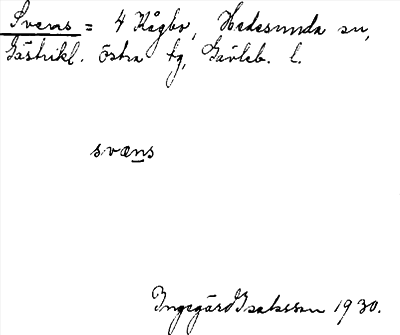 Svens = 4 Kågbo, Hedesunda sn,
Gästrikl. östra tg, Gävleb. l.
svæns
Ingegärd Isaksson 1930.